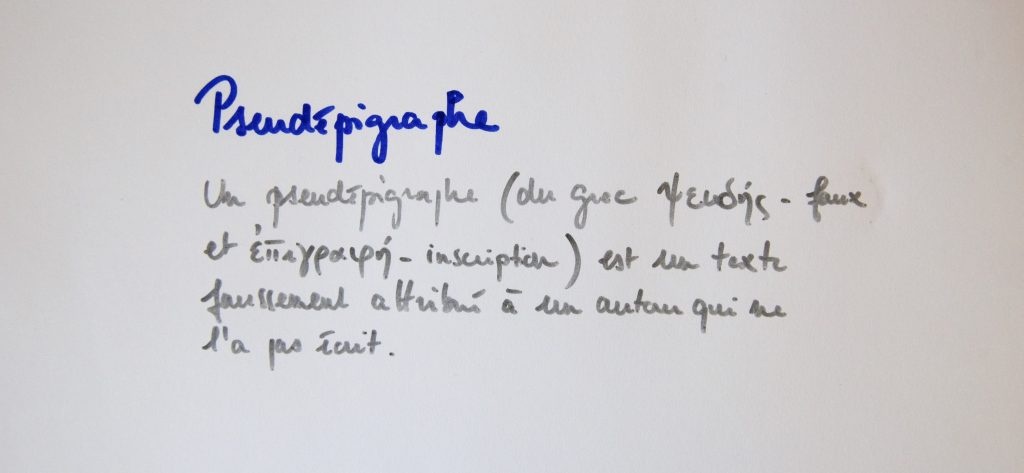 Pseudépigraphe
Un pseudépigraphe (du grec ψευδής - faux
et ἐπιγραφή - inscription) est un texte
faussement attribué à un auteur qui ne
l'a pas écrit.